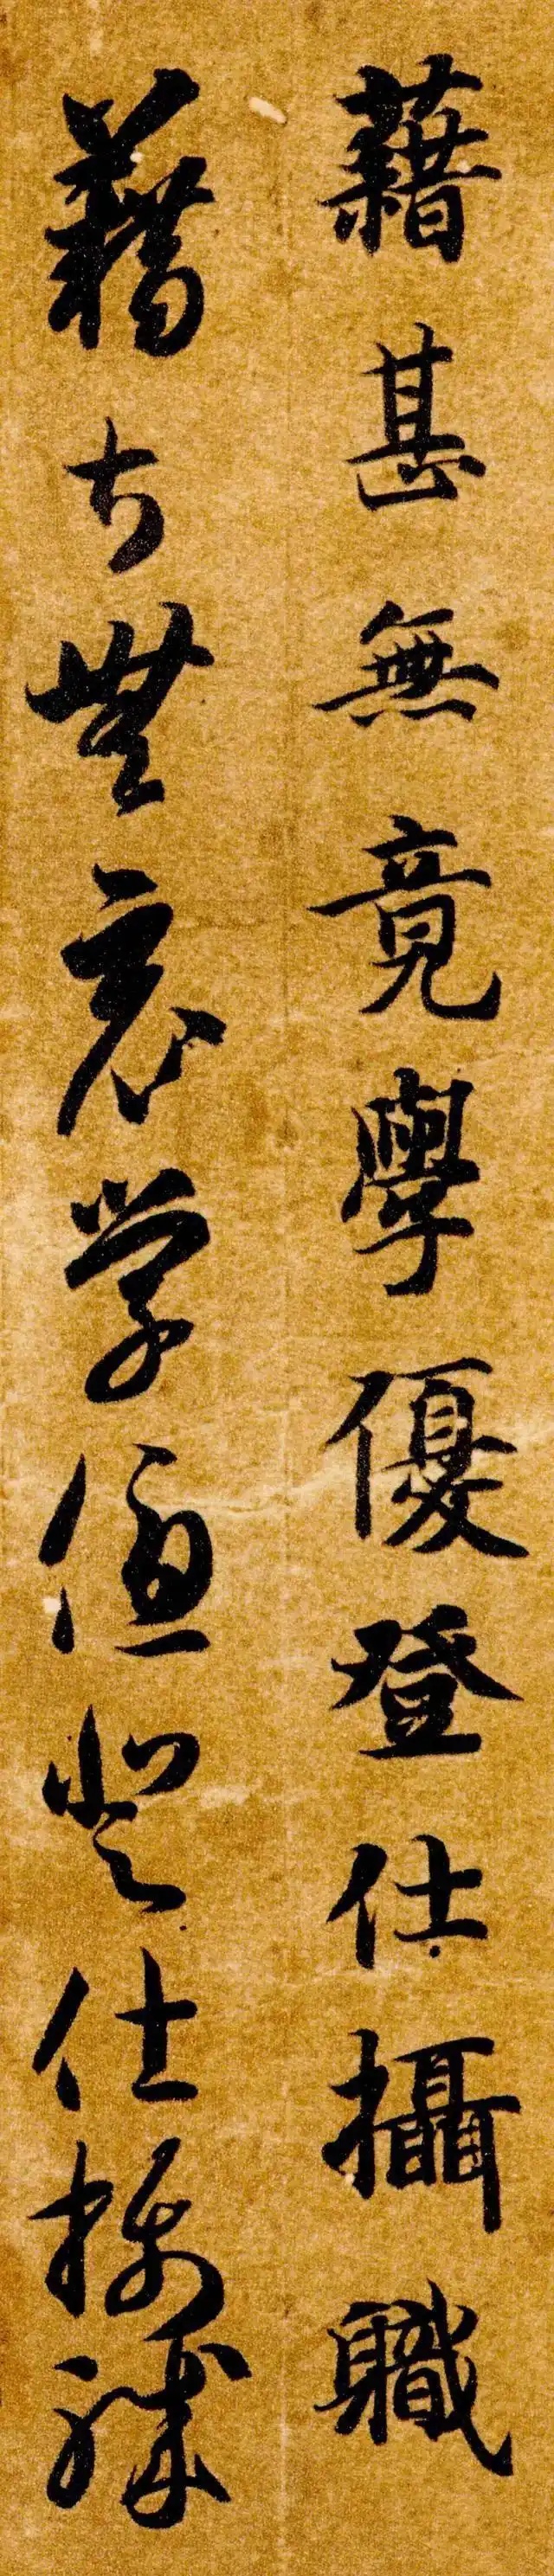 藉甚無竟學優登仕攝職
藉甚無竟學優登仕攝職